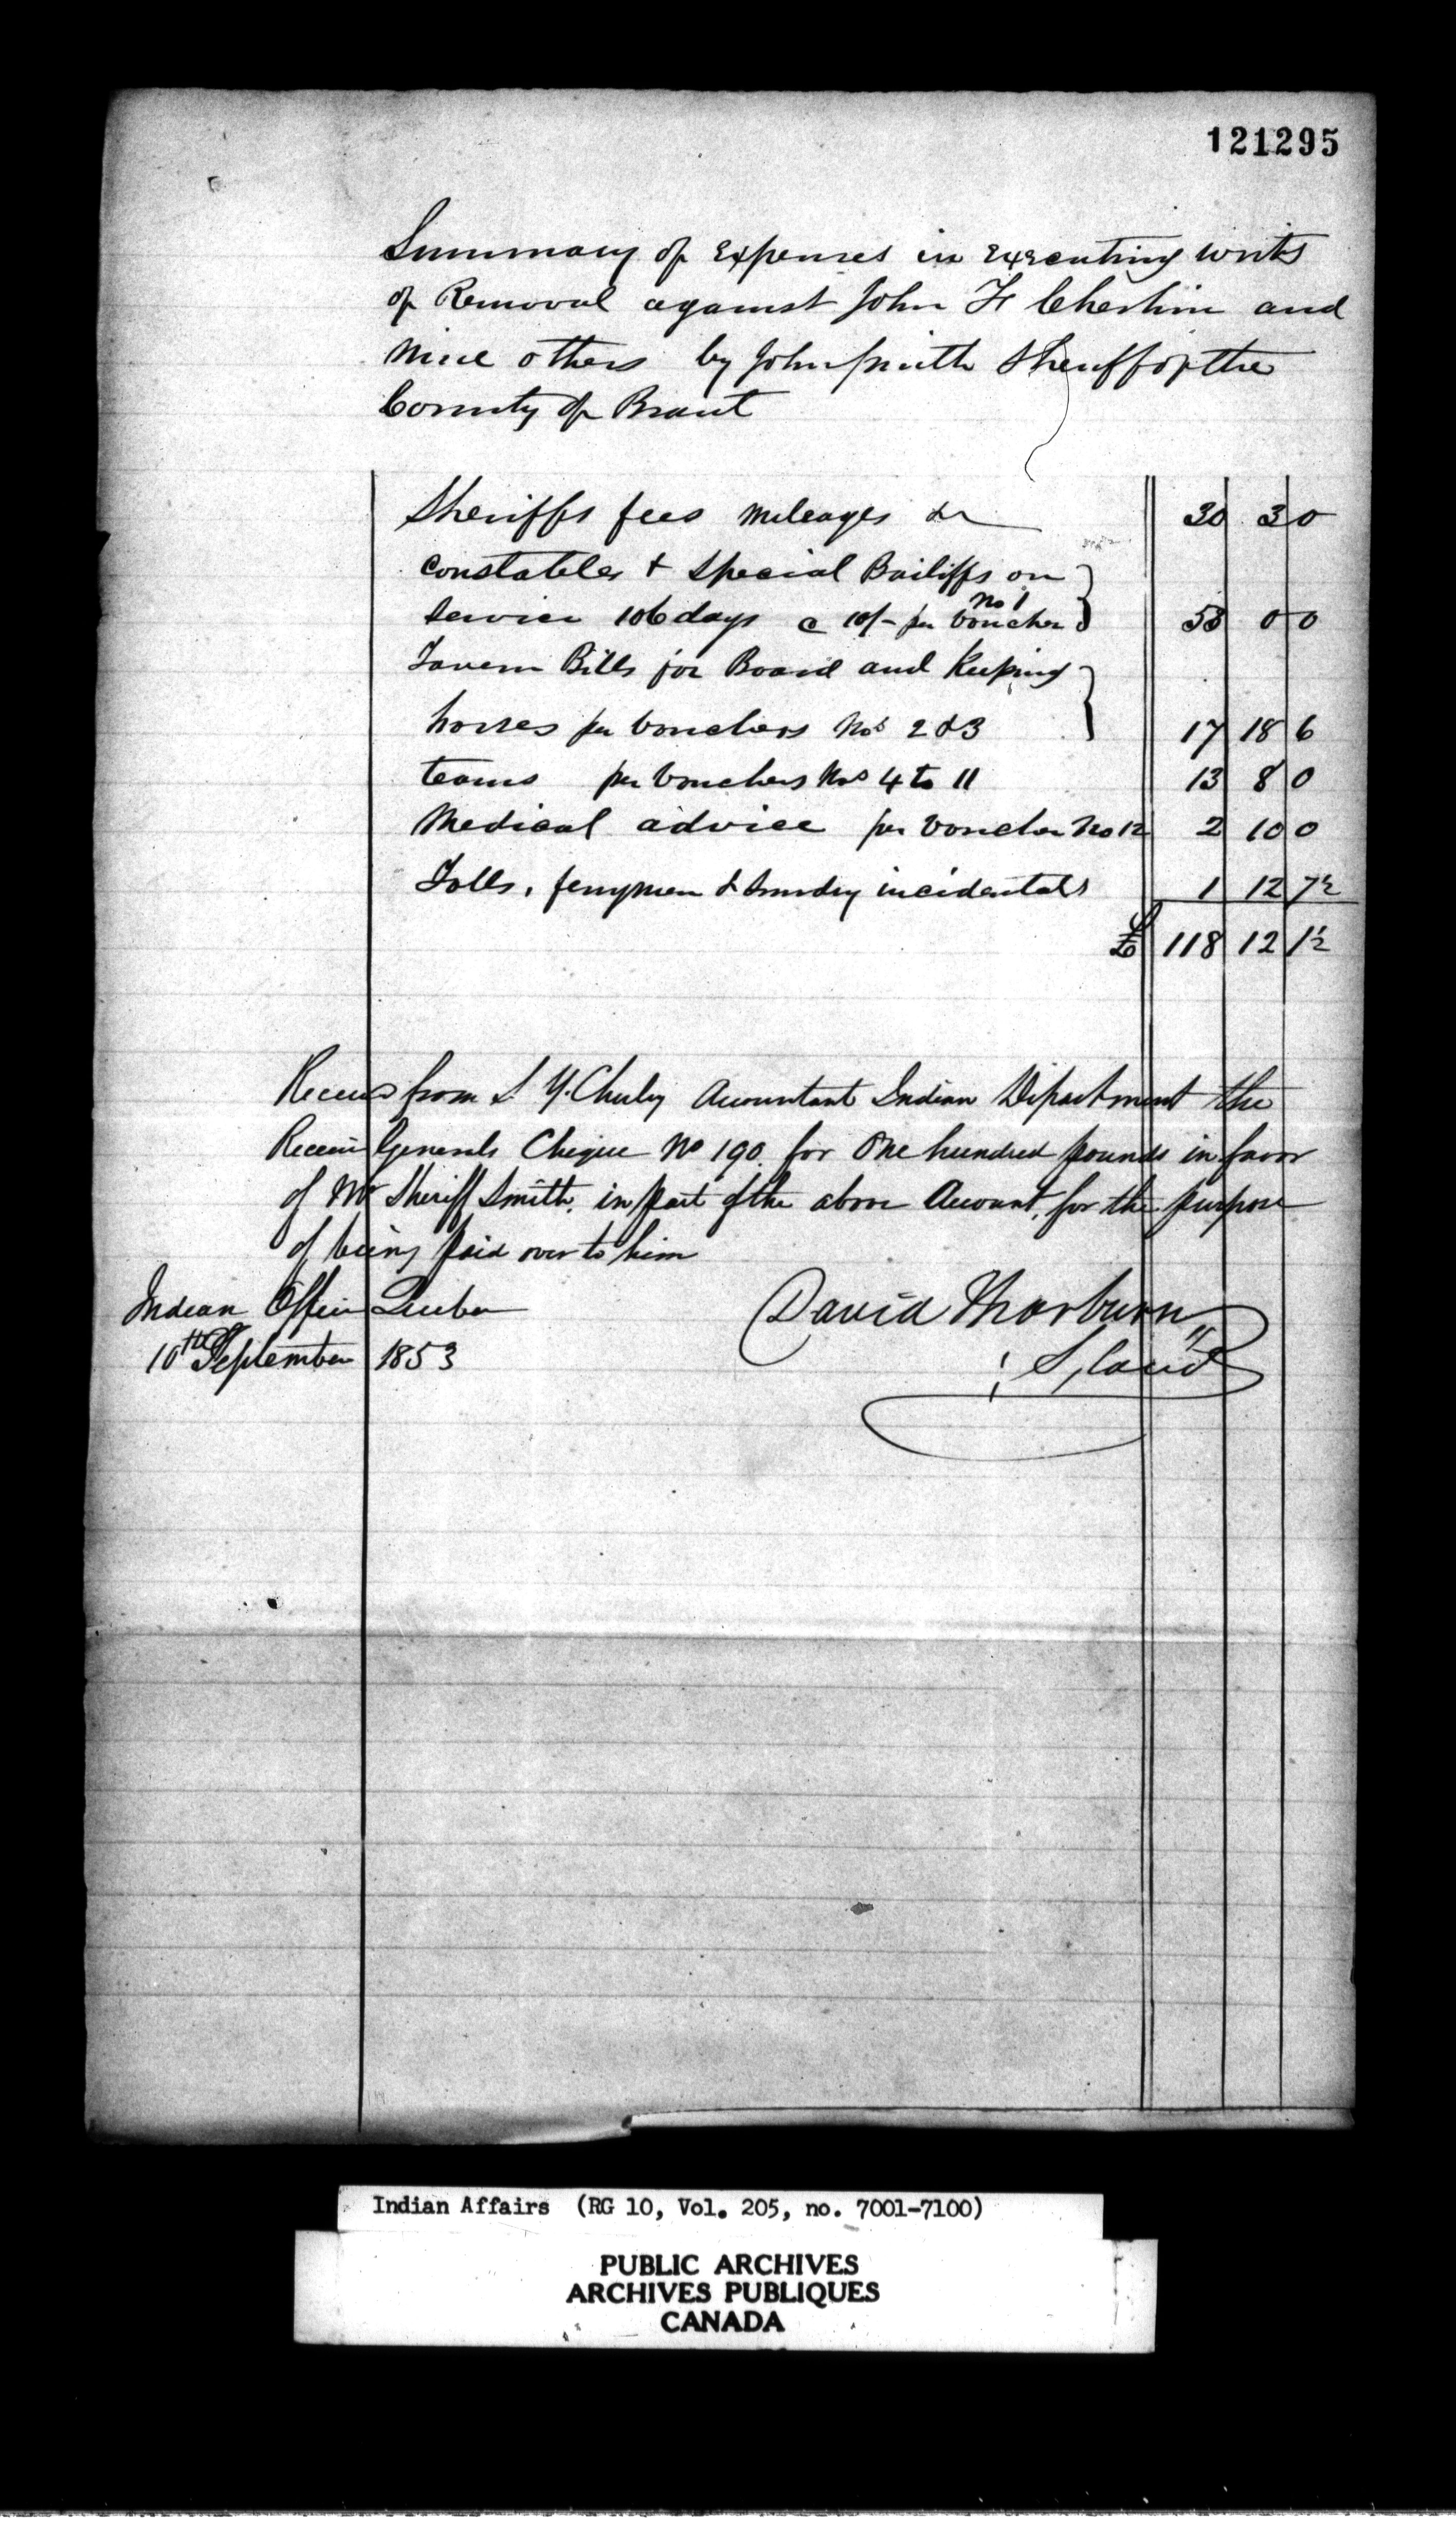 121295
Summary of Expenses in Executing writs
of Removal against John H Cheshire and
nine others by John Smith Sheriff of the
County of Brant
Sheriffs fees mileages &c 30 3 0
Constables & Special Bailiffs on
Service 106 days @ 10/- per voucher no 1 53 0 0
Tavern Bills for Board and Keeping
horses per vouchers Nos 2 & 3 17 18 6
teams per Vouchers Nos 4 to 11 13 8 0
Medical advice per Voucher No 12 2 10 0
Tolls, ferrymen & Sundry incidentals 1 12 7½
£ 118 12 1½
Received from S. Y. Chesley Accountant Indian Department the
Receiver Generals Cheque No 190. for One hundred pounds in favor
of Mr Sheriff Smith. in part of the above Account, for the purpose
of being paid over to him
Indian Office Quebec
10th September 1853
David Thorburn
Indian Affairs (RG 10, Vol. 205, no. 7001-7100)
PUBLIC ARCHIVES
ARCHIVES PUBLIQUES
CANADA